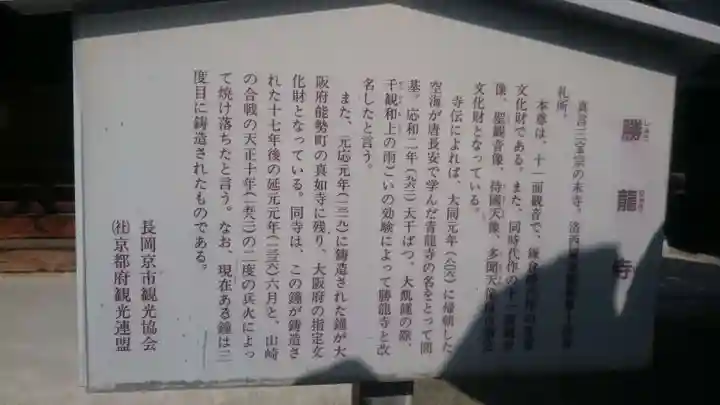 勝龍寺
真言三宝宗の末寺。洛西
礼所。
本尊は、十一面観音で、鎌倉
文化財である。また、同時代作の十一面観音
像、聖観音像、持國天像、多聞天像
文化財となっている。
寺伝によれば、大同元年(八〇六)に帰朝した
空海が唐長安で学んだ青龍寺の名をとって開
基。応和二年(九六二)大干ばつ、大飢饉の際、
千観和上の雨ごいの効験によって勝龍寺と改
名したと言う。
また、元応元年(一三一九)に鋳造された鐘が大
阪府能勢町の真如寺に残り、大阪府の指定文
化財となっている。同寺は、この鐘が鋳造さ
れた十七年後の延元元年(一三三六)六月と、山崎
の合戦の天正十年(一五八二)の二度の兵火によっ
て焼け落ちたと言う。なお、現在ある鐘は三
度目に鋳造されたものである。
長岡京市観光協会
㈳京都府観光連盟